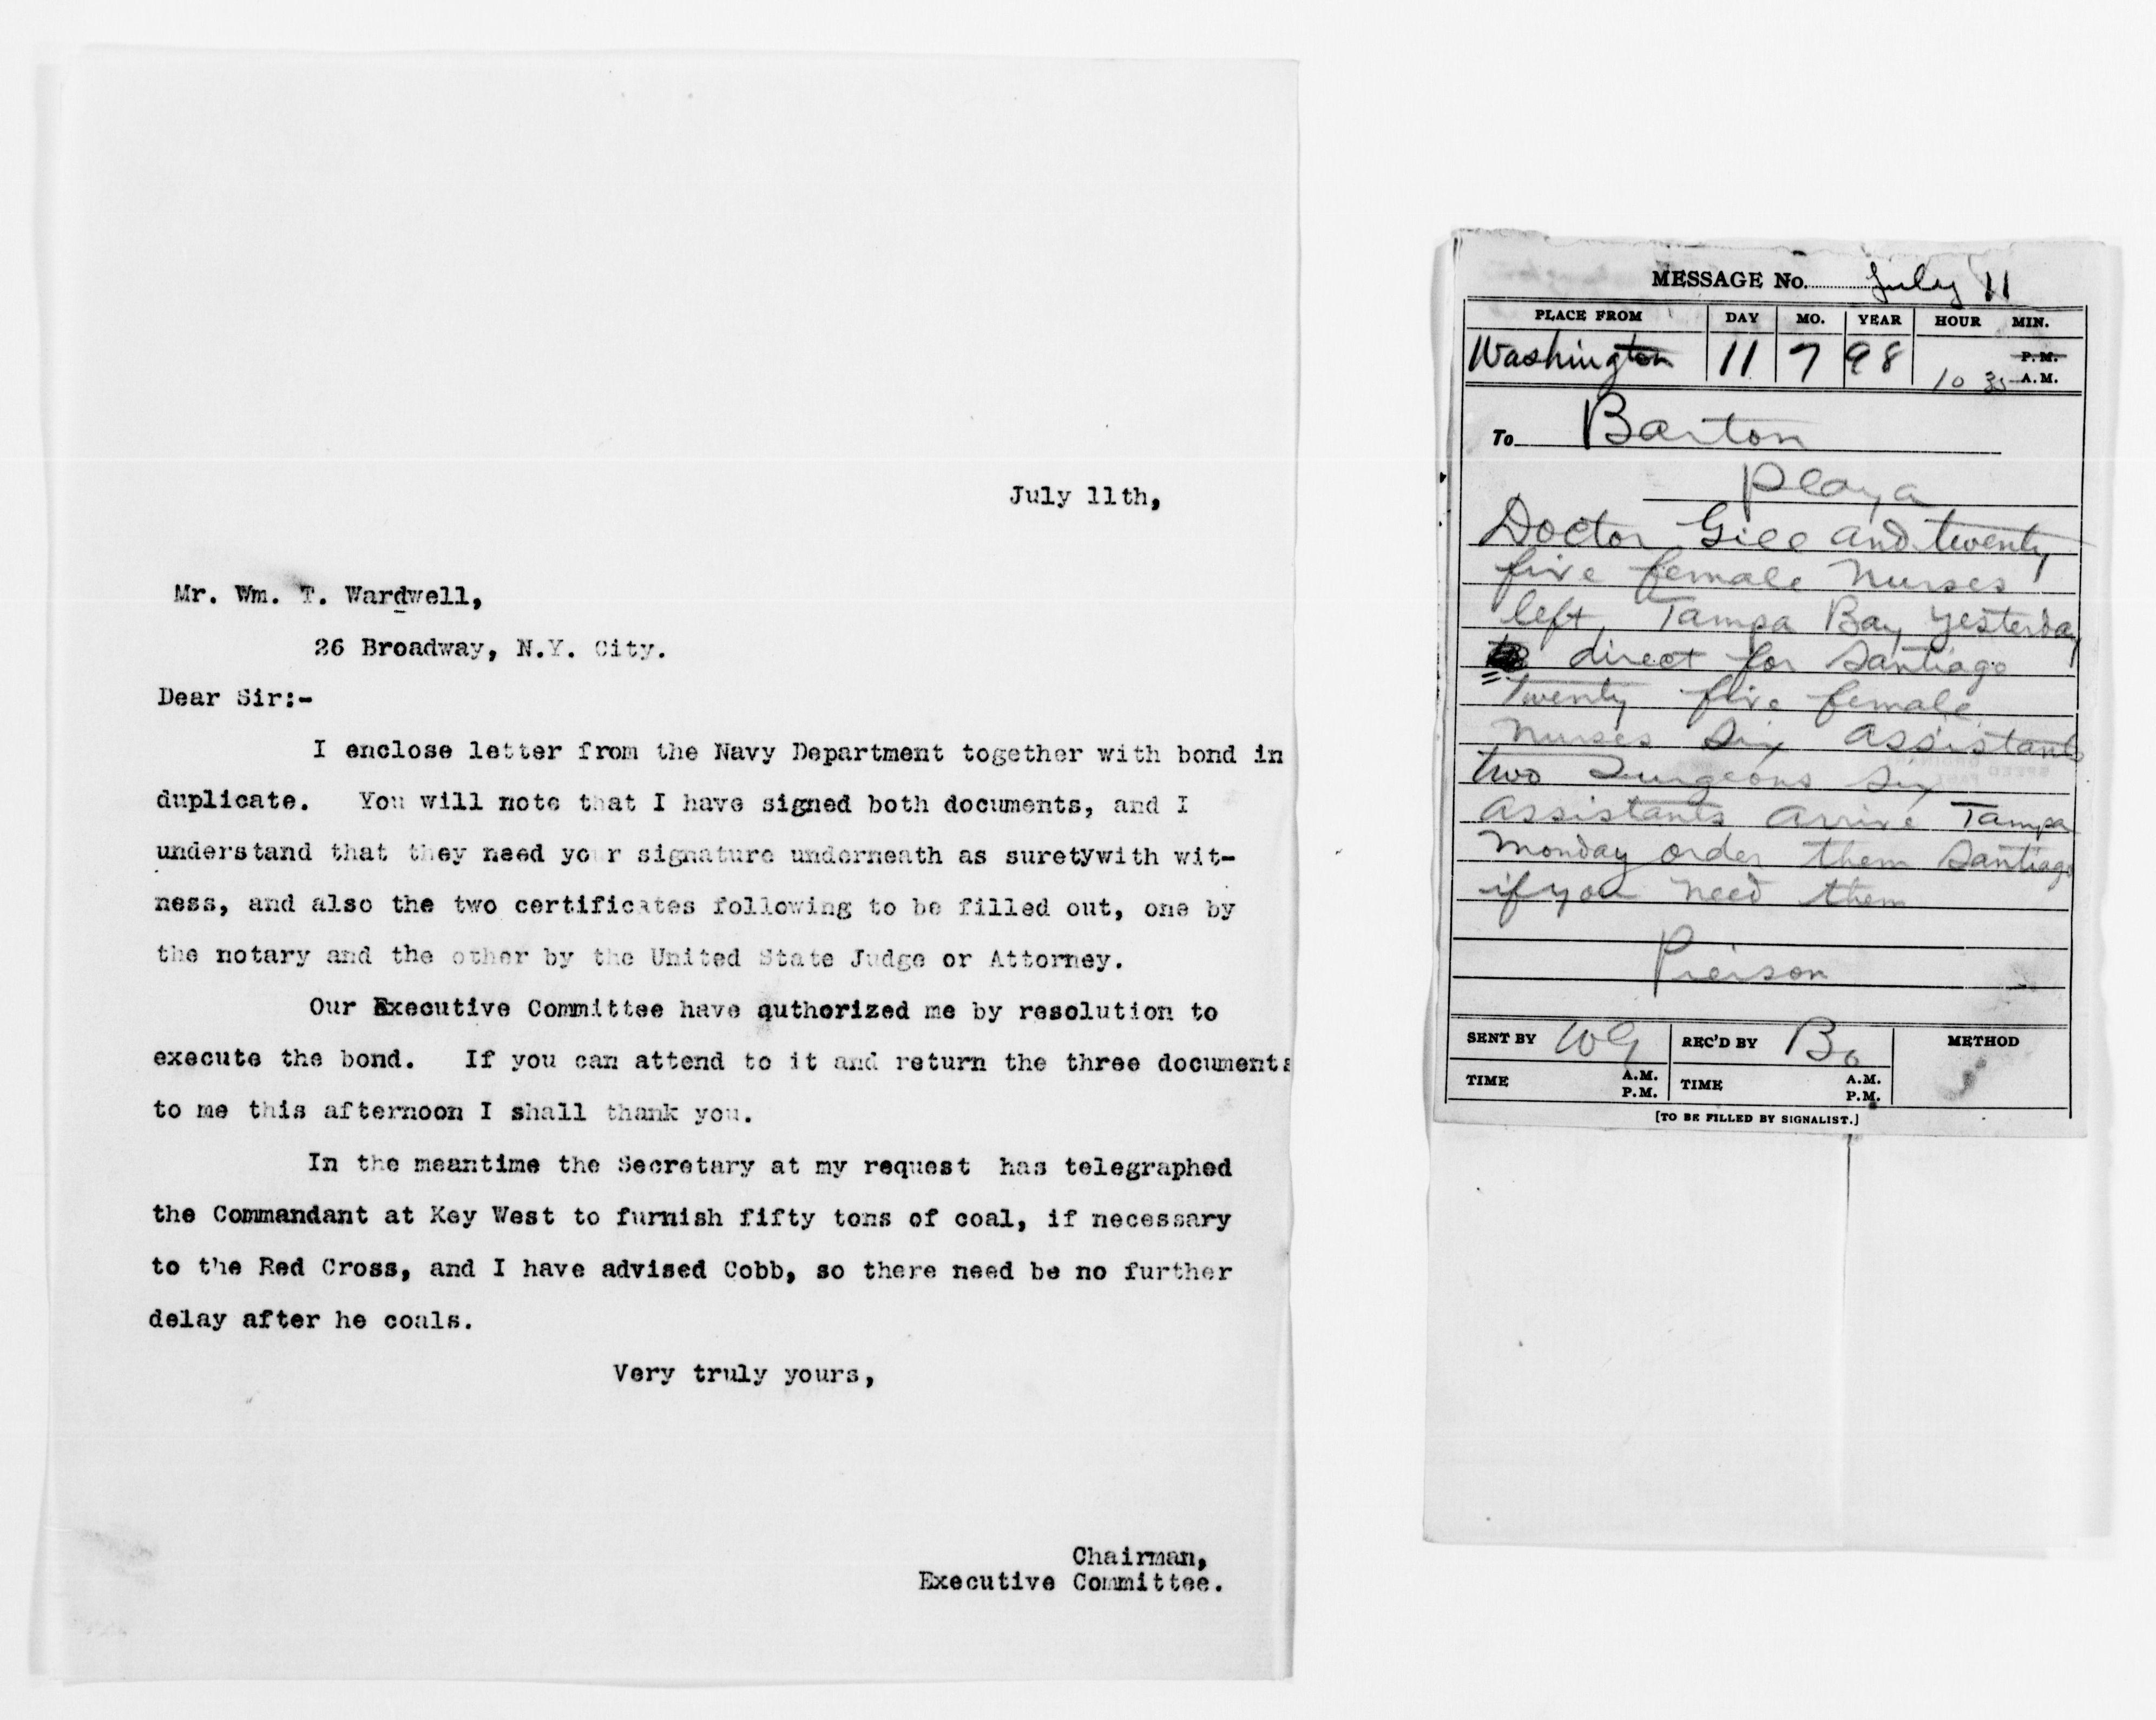 July 11th,
Mr. Wm. T. Wardwell,
26 Broadway, N.Y. City.
Dear Sir:-
I enclose letter from the Navy Department together with bond in
duplicate. You will note that I have signed both documents, and I
understand that they need your signature underneath as suretywith wit-
ness, and also the two certificates following to be filled out, one by
the notary and the other by the United State Judge or Attorney.
Our Executive Committee have authorized me by resolution to
execute the bond. If you can attend to it and return the three documents
to me this afternoon I shall thank you.
In the meantime the Secretary at my request has telegraphed
the Commandant at Key West to furnish fifty tons of coal, if necessary
to the Red Cross, and I have advised Cobb, so there need be no further
delay after he coals.
Very truly yours,
Chairman,
Executive Committee.
MESSAGE No. July 11
PLACE FROM DAY MO. YEAR HOUR MIN.
Washington 11 7 98 P.M.
10 35 A.M.
To Barton
Playa
Doctor Gill and twenty
five female nurses
left Tampa Bay yesterday
direct for Santiago
Twenty five female
nurses Six Assistants
two Surgeons Six
assistants arrive Tampa
Monday order them Santiago
if you need them
Pierson
SENT BY WG REC'D BY Bo METHOD
TIME A.M. P.M. TIME A.M. P.M.
[TO BE FILLED BY SIGNALIST.]